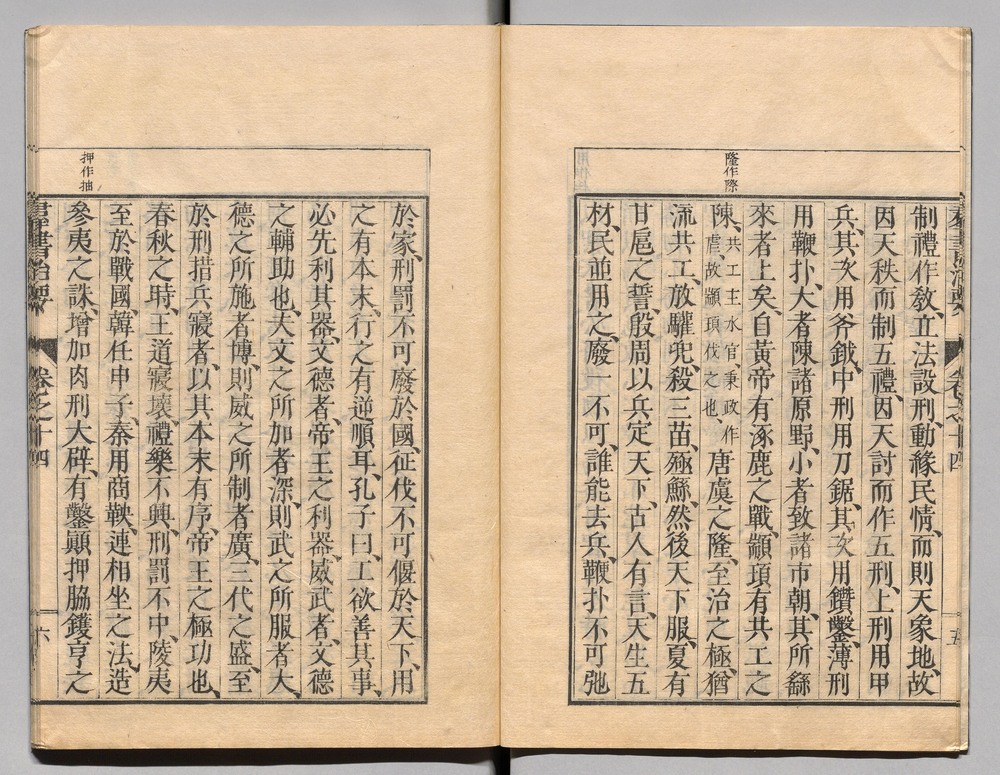 隆作際
制禮作敎、立法設刑、動緣民情、而則天象地、故
因天秩而制五禮、因天討而作五刑、上刑用甲
兵、其次用斧鉞、中刑用刀鋸、其次用鑽鑿、薄刑
用鞭扑、大者陳諸原野、小者致諸市朝、其所繇
來者上矣、自黃帝有涿鹿之戰、顓頊有共工之
陳、共工主水官、秉政作虐、故顓頊伐之也、唐虞之隆、至治之極、猶
流共工、放驩兜、殺三苗、殛鯀、然後天下服、夏有
甘扈之誓、殷周以兵定天下、古人有言、天生五
材、民並用之、廢一不可、誰能去兵、鞭扑不可弛
五
押作抽
於家、刑罰不可廢於國、征伐不可偃於天下、用
之有本末、行之有逆順耳、孔子曰、工欲善其事、
必先利其器、文德者、帝王之利器、威武者、文德
之輔助也、夫文之所加者深、則武之所服者大、
德之所施者博、則威之所制者廣、三代之盛、至
於刑措兵寢者、以其本末有序、帝王之極功也、
春秋之時、王道寢壞、禮樂不興、刑罰不中、陵夷
至於戰國、韓任申子、秦用商鞅、連相坐之法、造
參夷之誅、增加肉刑大辟、有鑿顚押脇鑊亨之
群書治要 卷之十四
六